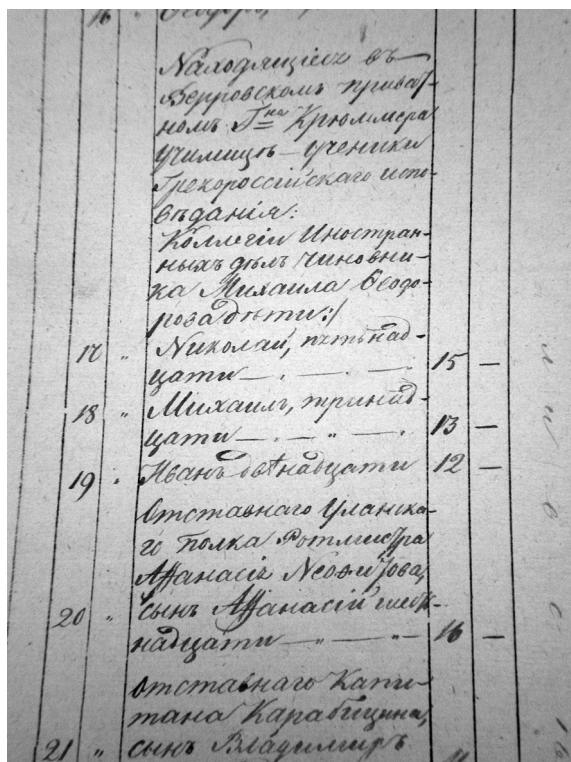 16 " Ѳедоръ,
Находящіеся въ
Верровскомъ приват-
номъ Г-на Крюммера
училищѣ – ученики
Грекороссійскаго испо-
вѣданія:
Коллегіи Иностран-
ныхъ дѣлъ чиновни-
ка Михаила Ѳеодо-
рова дѣти:/
17 " Николай, пятнад-
цати — . — . — 15 —
18 " Михаилъ, тринад-
цати — . — " — . 13 —
19 " Иванъ двѣнадцати 12 —
Отставнаго Уланска-
го полка Ротмистра
Аѳанасія Неофитова,
20 " сынъ Аѳанасій шест-
надцати — " — " — 16 —
Отставнаго Капи-
тана Карабицына,
21 " сынъ Владимиръ